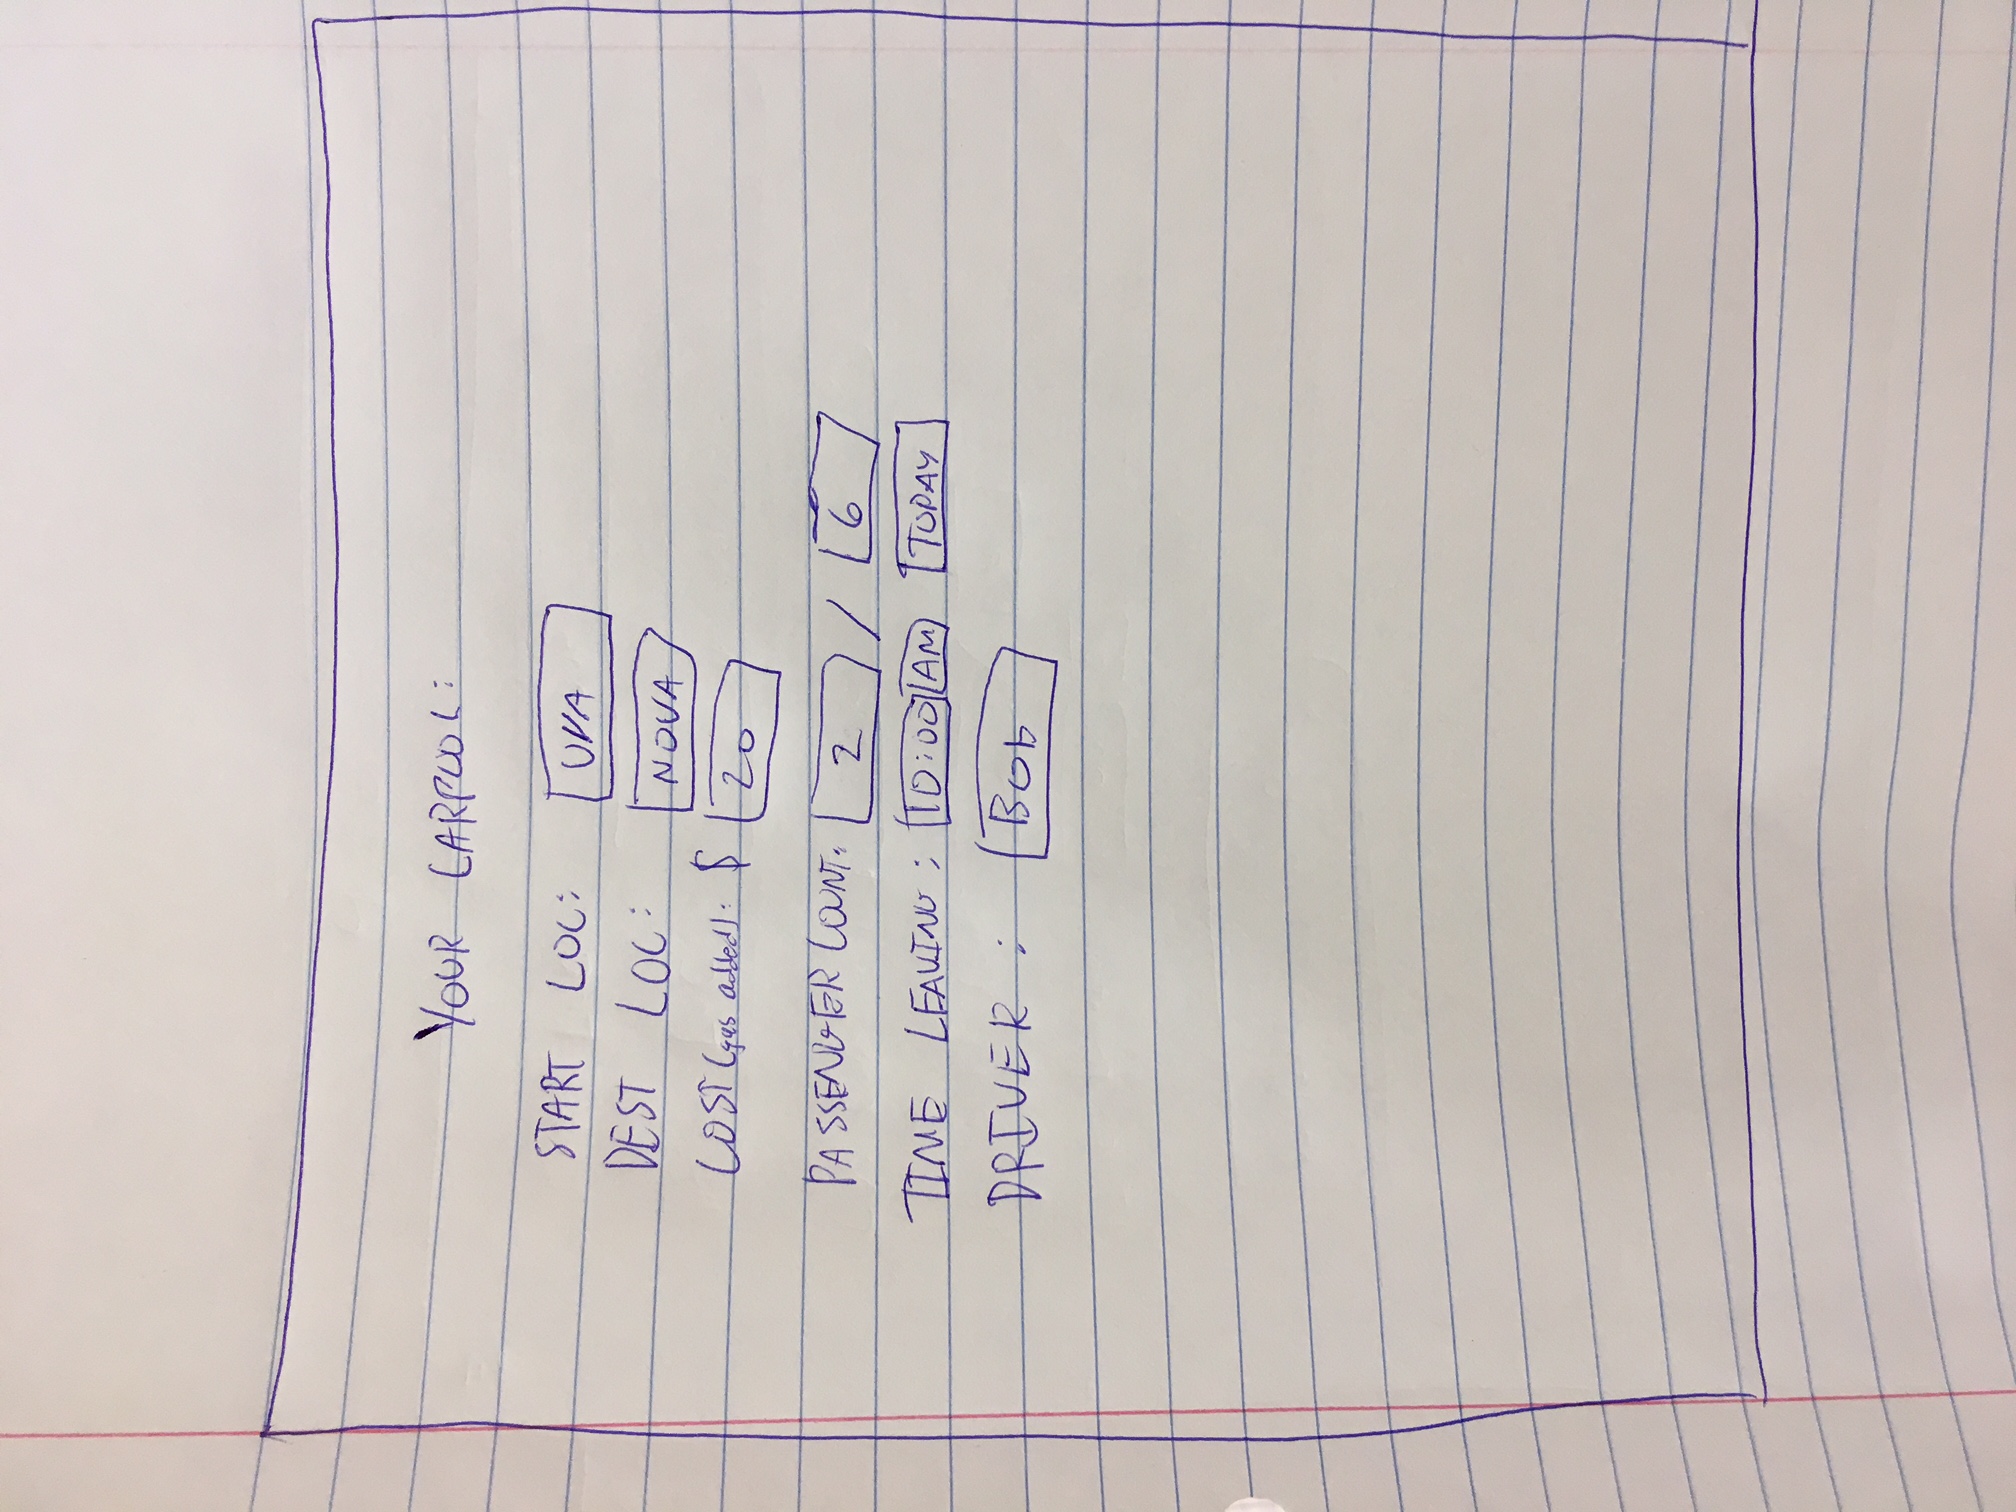 YOUR CARPOOL:
START LOC: UVA
DEST LOC: NOVA
COST (gas added): $ 20
PASSENGER COUNT: 2 / 6
TIME LEAVING: 10:00 AM TODAY
DRIVER: Bob